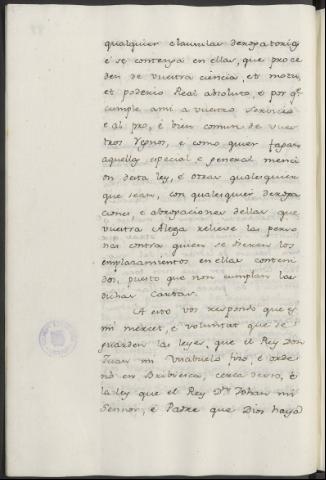 qualquier clausulas derogatorias
é se contenga en ellas, que proce
den de vuestra ciencia, et motu,
et poderio Real absoluto, é por q.e
cumple ami a vuestro servicio
é al pro, é bien comun de vues
tros Regnos, é como quier fagan
aquella especial e general menci
on desta ley, é otras qualesquier
que sean, con qualesquier deroga
ciones, é abrogaciones dellas que
vuestra Alteza relieve las perso
nas contra quien se dieren los
emplazamientos en ellas conteni
dos, puesto que non cumplan las
dichas Cartas.
A esto vos respondo que es
mi merced, é voluntat que se
guarden las leyes, que el Rey Don
Juan mi Visabuelo fizo, é orde
nó en Bribiesca, cerca desto, é
la ley que el Rey D.n Johan mi
Sennor, é Padre que Dios haya